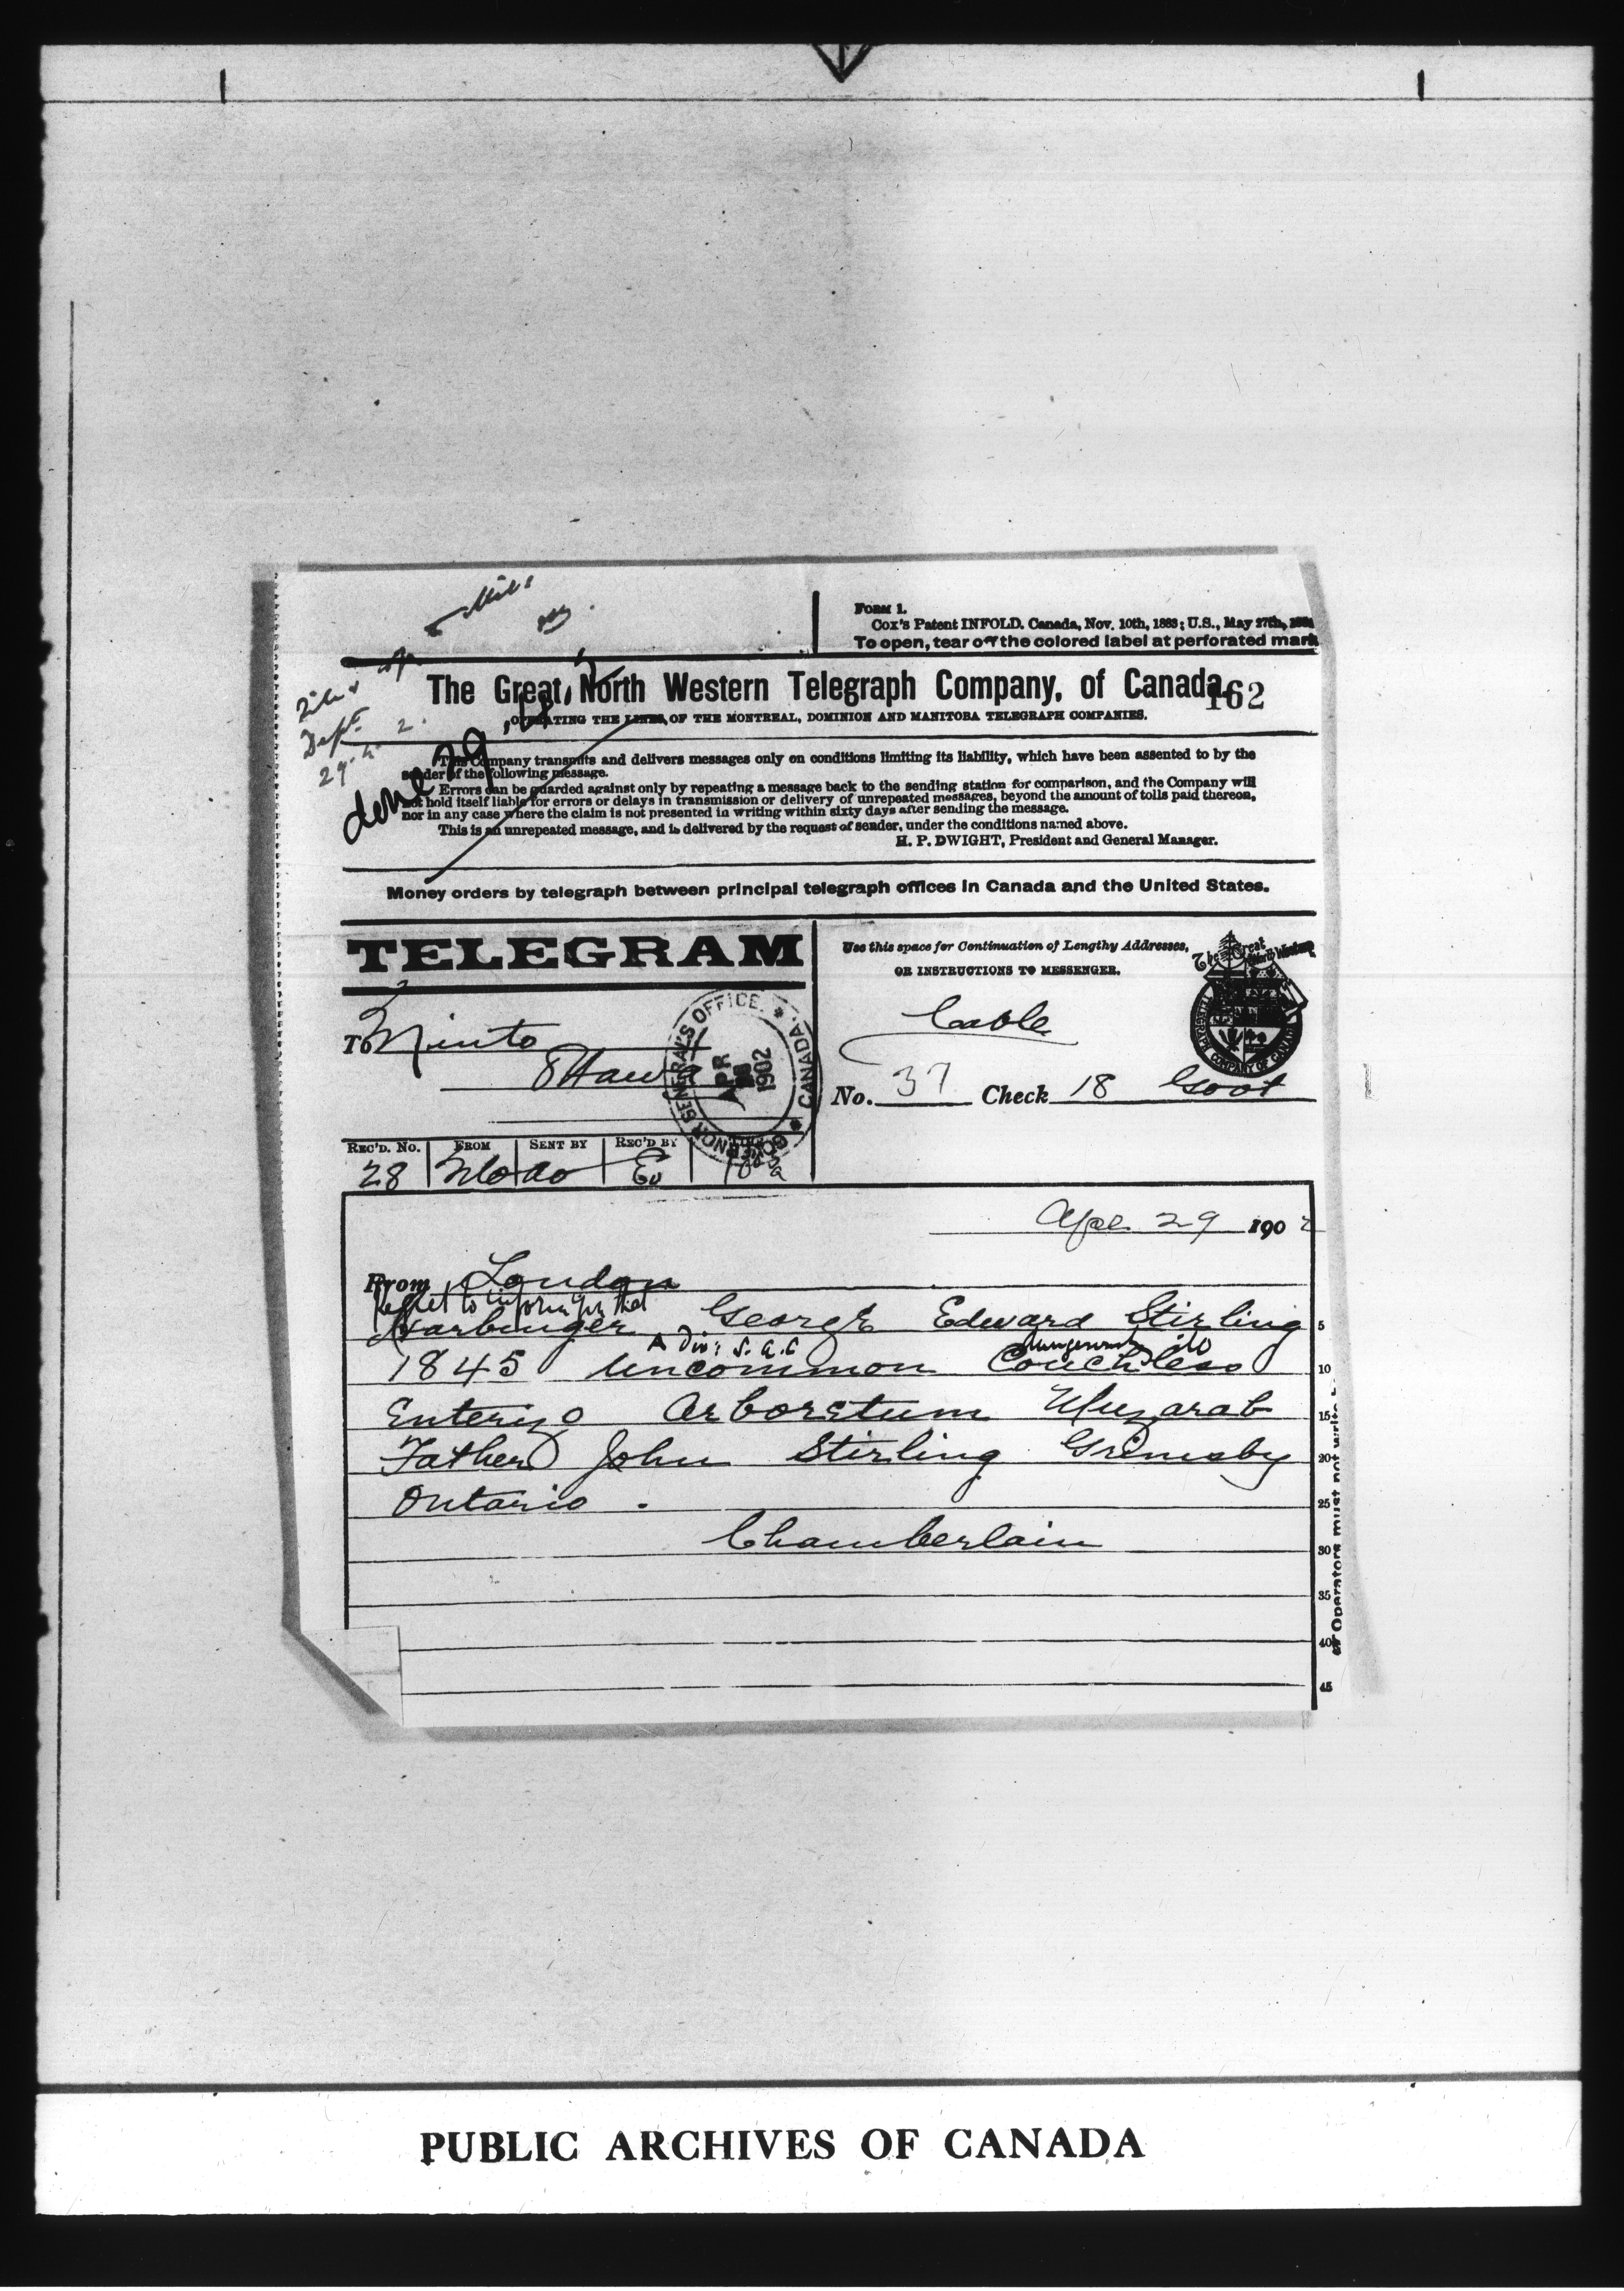 Mil.
FORM 1.
Cox's Patent INFOLD. Canada, Nov. 10th, 1883; U.S., May 27th,
To open, tear off the colored label at perforated mark
The Great North Western Telegraph Company, of Canada.
162
OPERATING THE LINES OF THE MONTREAL, DOMINION AND MANITOBA TELEGRAPH COMPANIES.
Dept.
29.4.2.
done 29
This Company transmits and delivers messages only on conditions limiting its liability, which have been assented to by the
sender of the following message.
Errors can be guarded against only by repeating a message back to the sending station for comparison, and the Company will
not hold itself liable for errors or delays in transmission or delivery of unrepeated messages, beyond the amount of tolls paid thereon,
nor in any case where the claim is not presented in writing within sixty days after sending the message.
This is an unrepeated message, and is delivered by the request of sender, under the conditions named above.
H. P. DWIGHT, President and General Manager.
Money orders by telegraph between principal telegraph offices in Canada and the United States.
TELEGRAM
Use this space for Continuation of Lengthy Addresses,
OR INSTRUCTIONS TO MESSENGER.
The Great North Western
TELEGRAPH COMPANY OF CANADA
To Minto
Ottawa
GOVERNOR GENERAL'S OFFICE. * CANADA. *
APR
1902
Cable
No. 37 Check 18 Govt
REC'D. No. FROM SENT BY REC'D BY
28
Apl 29 1902
From London
Regret to inform you that
Harbinger George Edward Stirling 5
A Div: S.A.C dangerously ill
1845 Uncommon Couchless 10
Enterizo Arboretum Muzarab 15
Father John Stirling Grimsby 20
Ontario . 25
Chamberlain
30
35
40
45
Operators must not write
PUBLIC ARCHIVES OF CANADA